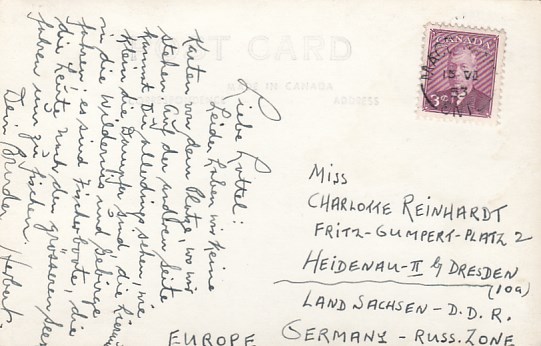 POST CARD
MADE IN CANADA
CORRESPONDENCE
ADDRESS
CANADA
15 VI
53
3
Liebe Lottel:
Leider haben wir keine
Karten von dem Platze, wo wir
stehen. Auf der andren Seite
kannst Du allerdings sehen, wie
klein die Dampfer sind, die hierin
in die Wildernis und Gebirge
fahren; es sind Finderboote, die
die Leute nach den grösseren Seen
fahren um zu fischen.
Dein Bruder Herbert.
MISS
CHARLOTTE REINHARDT
FRITZ-GUMPERT-PLATZ 2
HEIDENAU-II b/ DRESDEN
(10a)
LAND SACHSEN - D.D.R.
EUROPE GERMANY - RUSS. ZONE